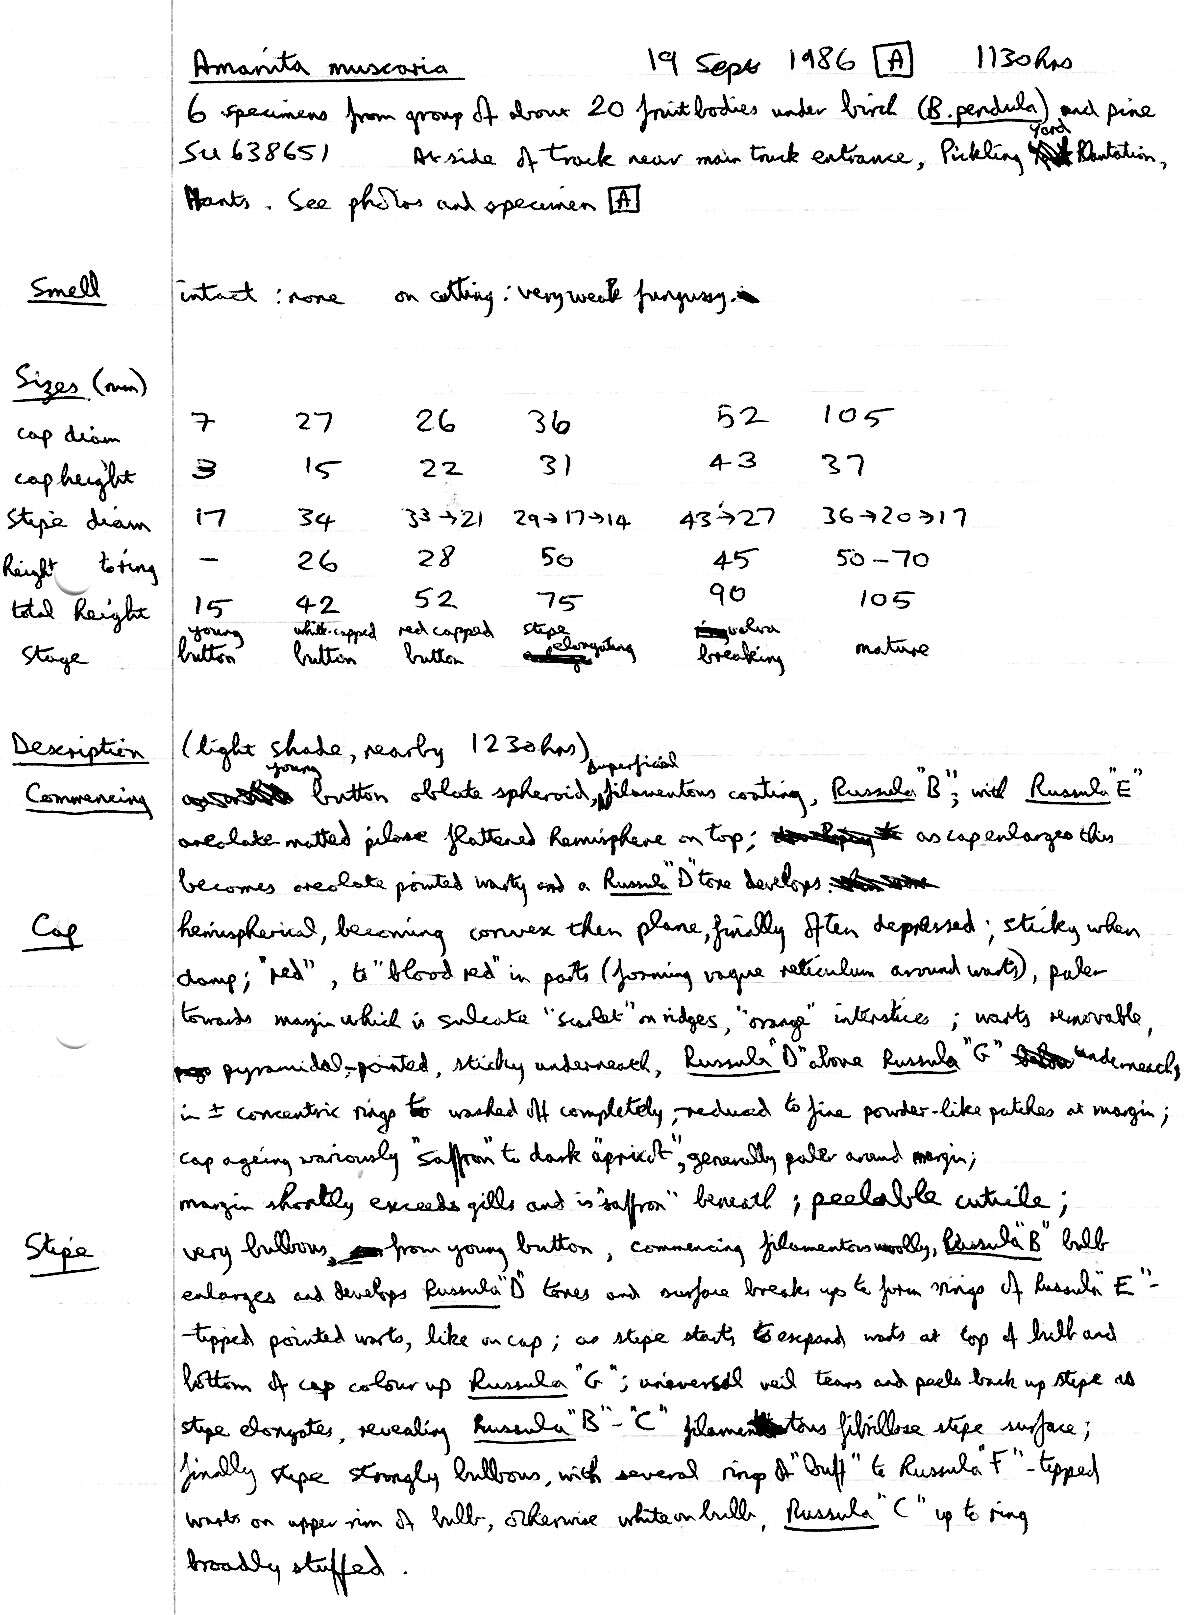 Amanita muscaria 19 Sept 1986 A 1130hrs
6 specimens from group of about 20 fruitbodies under birch (B. pendula) and pine
SU 638651 At side of track near main truck entrance, Pickling Yard Plantation,
Hants. See photos and specimen A
Smell intact: none on cutting: very weak fungussy.
Sizes (mm)
cap diam 7 27 26 36 52 105
cap height 3 15 22 31 43 37
Stipe diam 17 34 33→21 29→17→14 43→27 36→20→17
height to ring – 26 28 50 45 50–70
total height 15 42 52 75 90 105
stage young button white-capped button red capped button stipe elongating volva breaking mature
Description (light shade, nearby 1230hrs)
Commencing young button oblate spheroid, superficial filamentous coating, Russula "B"; with Russula "E"
areolate matted pilose flattened hemisphere on top; as cap enlarges this
becomes areolate pointed warty and a Russula "D" tone develops.
Cap hemispherical, becoming convex then plane, finally often depressed; sticky when
damp; "red", to "blood red" in parts (forming vague reticulum around warts), paler
towards margin which is sulcate "scarlet" on ridges, "orange" interstices; warts removable,
pyramidal-pointed, sticky underneath, Russula "D" above Russula "G" underneath,
in ± concentric rings to washed off completely, reduced to fine powder-like patches at margin;
cap ageing variously "saffron" to dark "apricot", generally paler around margin;
margin shortly exceeds gills and is "saffron" beneath; peelable cuticle;
Stipe very bulbous, from young button, commencing filamentous woolly, Russula "B" bulb
enlarges and develops Russula "D" tones and surface breaks up to form rings of Russula "E"-
-tipped pointed warts, like on cap; as stipe starts to expand warts at top of bulb and
bottom of cap colour up Russula "G"; universal veil tears and peels back up stipe as
stipe elongates, revealing Russula "B"-"C" filamentous fibrillose stipe surface;
finally stipe strongly bulbous, with several rings of "buff" to Russula "F"-tipped
warts on upper rim of bulb, otherwise white on bulb, Russula "C" up to ring
broadly stuffed.